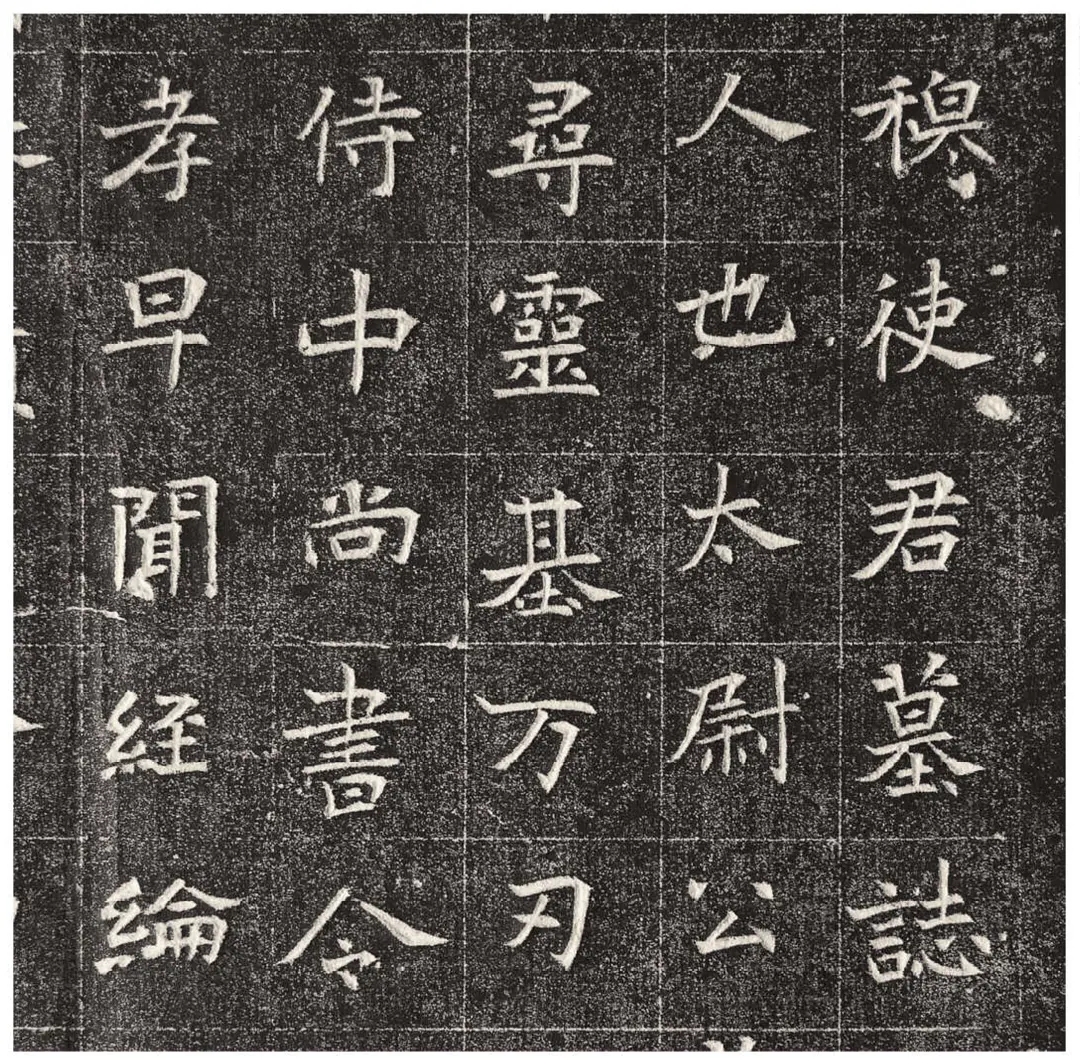 穆使君墓誌
人也太尉公
尋靈基万刃
侍中尚書令
孝早聞經綸